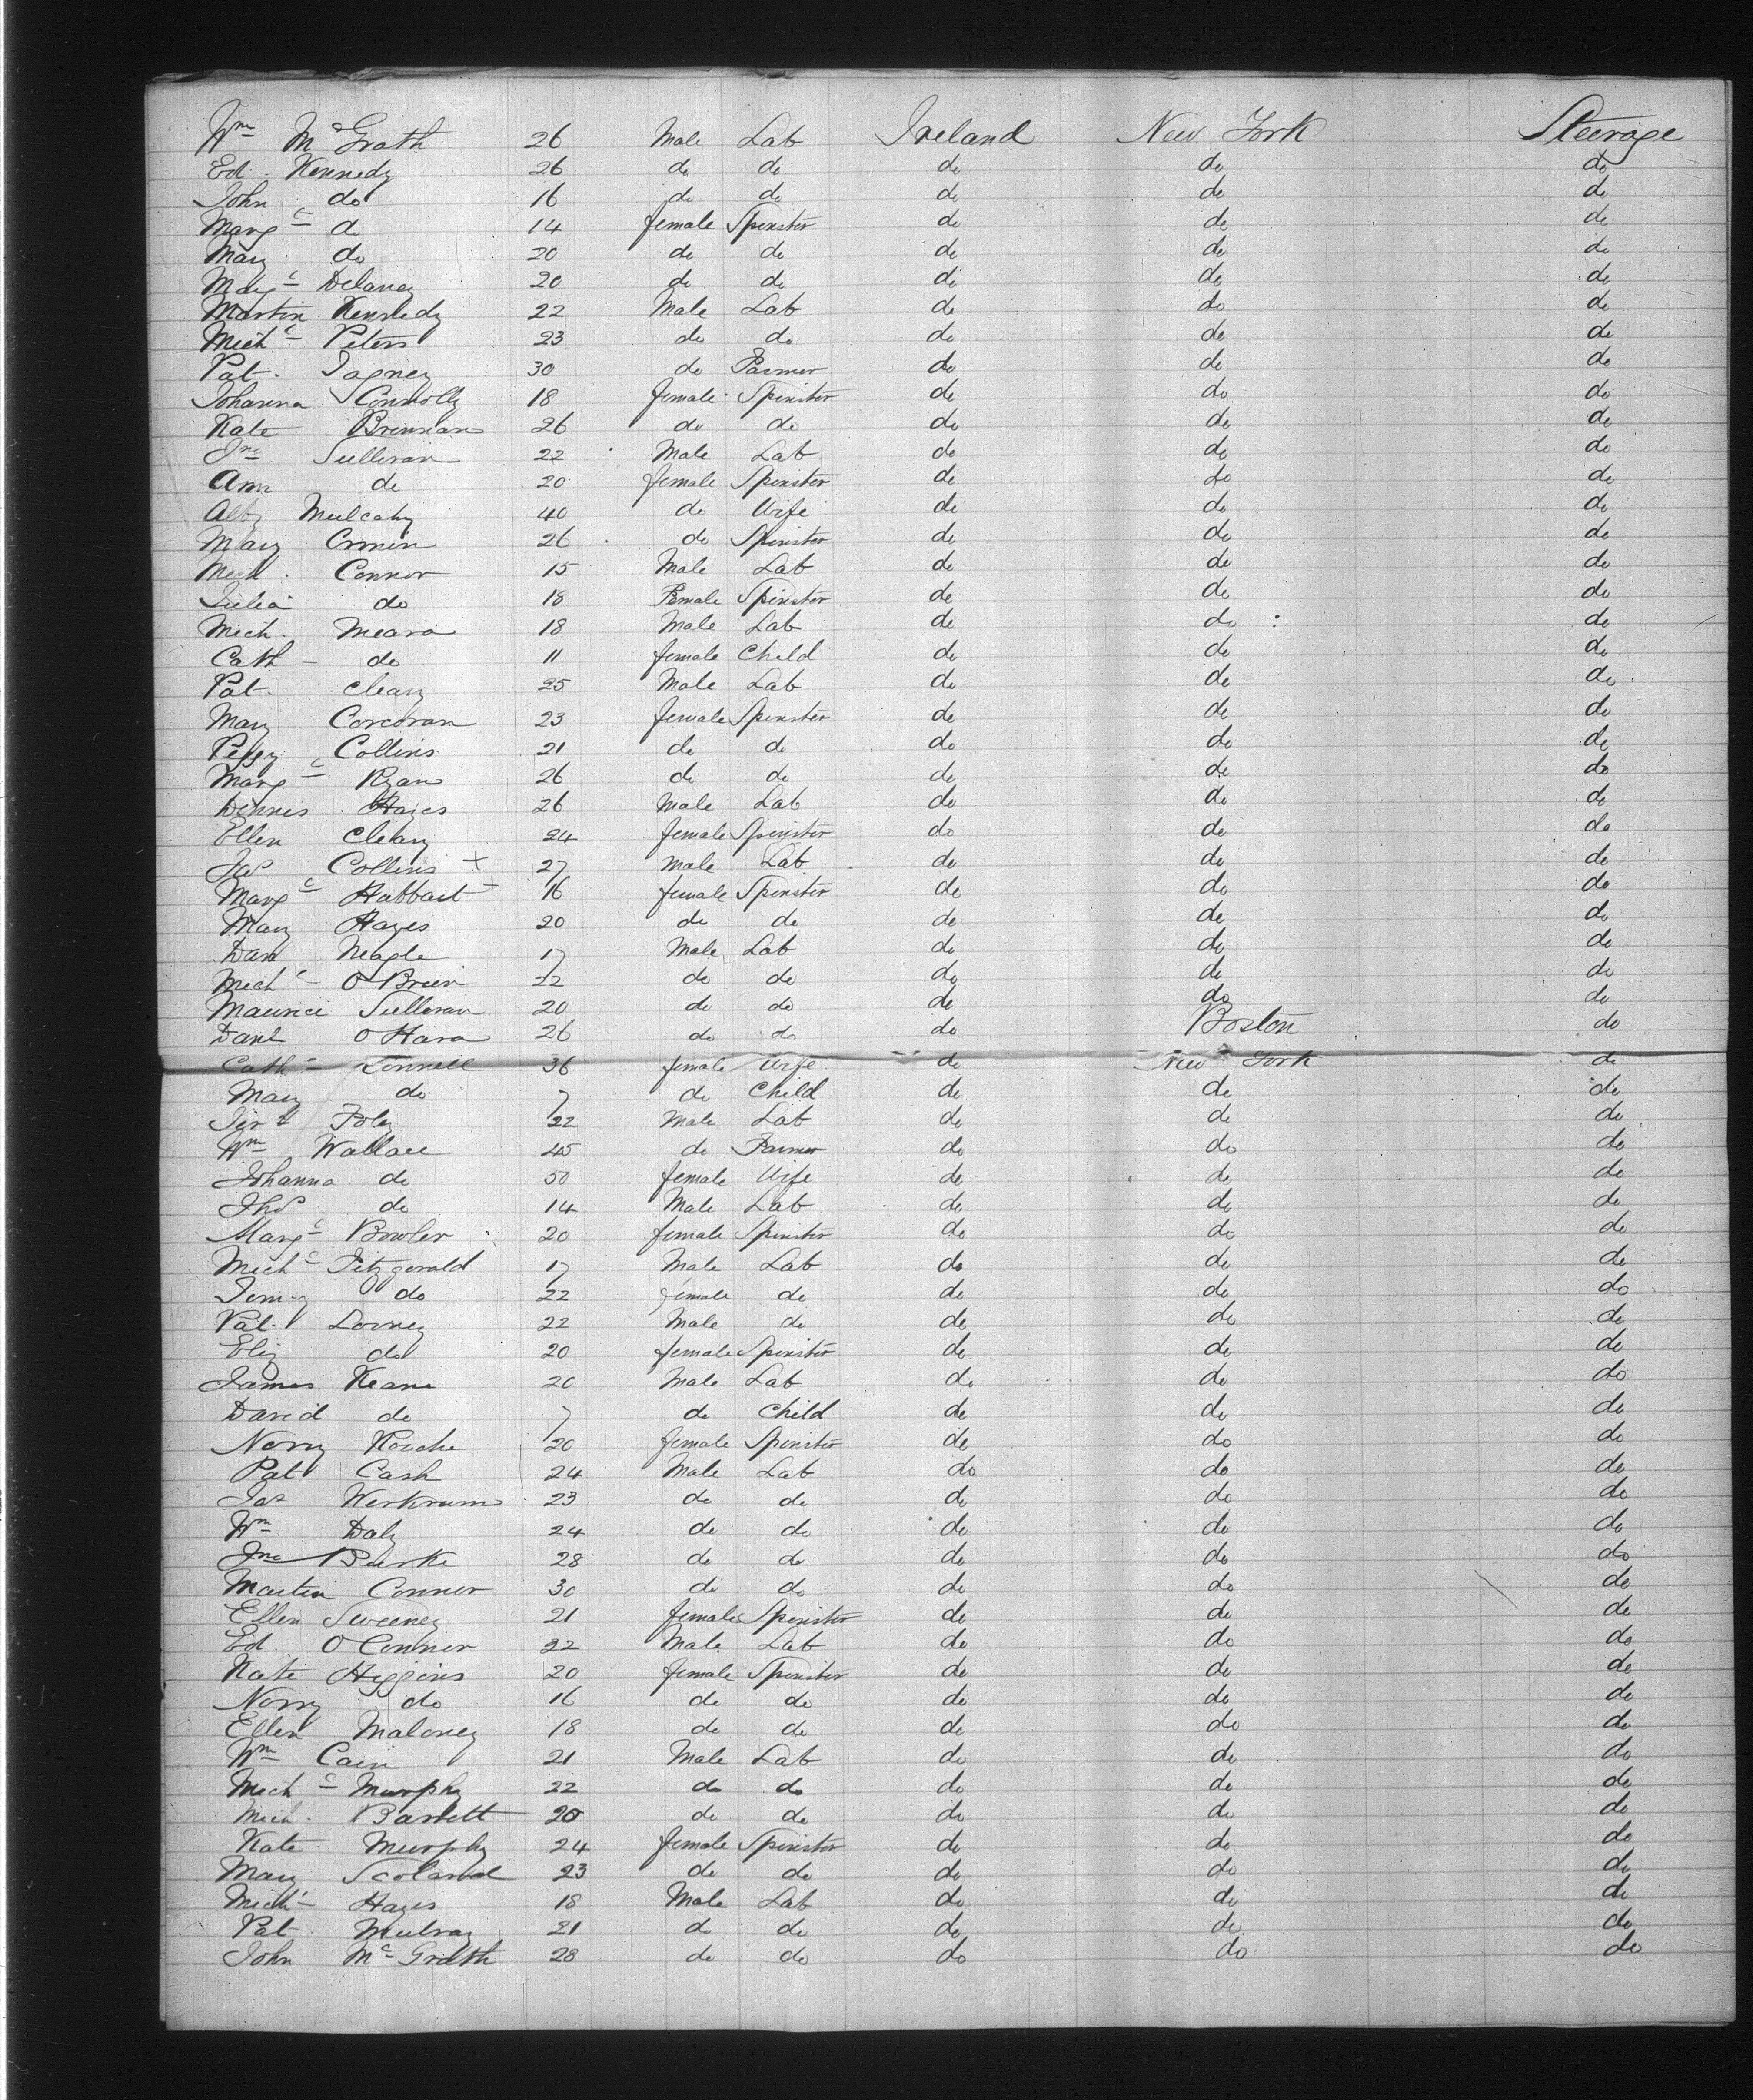 Wm McGrath 26 Male Lab Ireland New York Steerage
Ed. Kennedy 26 do do do do do
John do 16 do do do do do
Margt do 14 female Spinster do do do
Mary do 20 do do do do do
Margt Delaney 20 do do do do do
Martin Kennedy 22 Male Lab do do do
Michl Peters 23 do do do do do
Pat. 30 do Farmer do do do
Johanna Connolly 18 female Spinster do do do
Kate Brennan 26 do do do do do
Jno Sullivan 22 Male Lab do do do
Ann do 20 female Spinster do do do
Mulcahy 40 do Wife do do do
Mary Cronin 26 do Spinster do do do
Mich. Connor 15 Male Lab do do do
Julia do 18 Female Spinster do do do
Mich. Meara 18 Male Lab do do do
Cath do 11 female Child do do do
Pat. Cleary 25 Male Lab do do do
Mary Corcoran 23 female Spinster do do do
Peggy Collins 21 do do do do do
Margt Ryan 26 do do do do do
Dennis Hayes 26 Male Lab do do do
Ellen Cleary 24 female Spinster do do do
Jas Collins + 27 Male Lab do do do
Margt Habbart + 16 female Spinster do do do
Mary Hayes 20 do do do do do
Dan Neagle 17 Male Lab do do do
Michl O Brien 22 do do do do do
Maurice Sullivan 20 do do do do do
Danl O Hara 26 do do do Boston do
Cath 36 female Wife do New York do
Mary do 7 do Child do do do
Foley 22 Male Lab do do do
Wm Wallace 45 do Farmer do do do
Johanna do 50 female Wife do do do
Thos do 14 Male Lab do do do
Margt Bowler 20 female Spinster do do do
Michl Fitzgerald 17 Male Lab do do do
do 22 female do do do do
Pat. Looney 22 Male do do do do
Eliz do 20 female Spinster do do do
James Keane 20 Male Lab do do do
David do 7 do Child do do do
Norry Roche 20 female Spinster do do do
Pat Cash 24 Male Lab do do do
Jas 23 do do do do do
Wm Daly 24 do do do do do
Jno Burke 28 do do do do do
Martin Connor 30 do do do do do
Ellen Sweeney 21 female Spinster do do do
Ed. O Connor 22 Male Lab do do do
Kate Higgins 20 female Spinster do do do
Norry do 16 do do do do do
Ellen Maloney 18 do do do do do
Wm Cain 21 Male Lab do do do
Michl Murphy 22 do do do do do
Mich. Bartlett 20 do do do do do
Kate Murphy 24 female Spinster do do do
Mary Scoland 23 do do do do do
Michl Hayes 18 Male Lab do do do
Pat. Mulvay 21 do do do do do
John McGrath 28 do do do do do